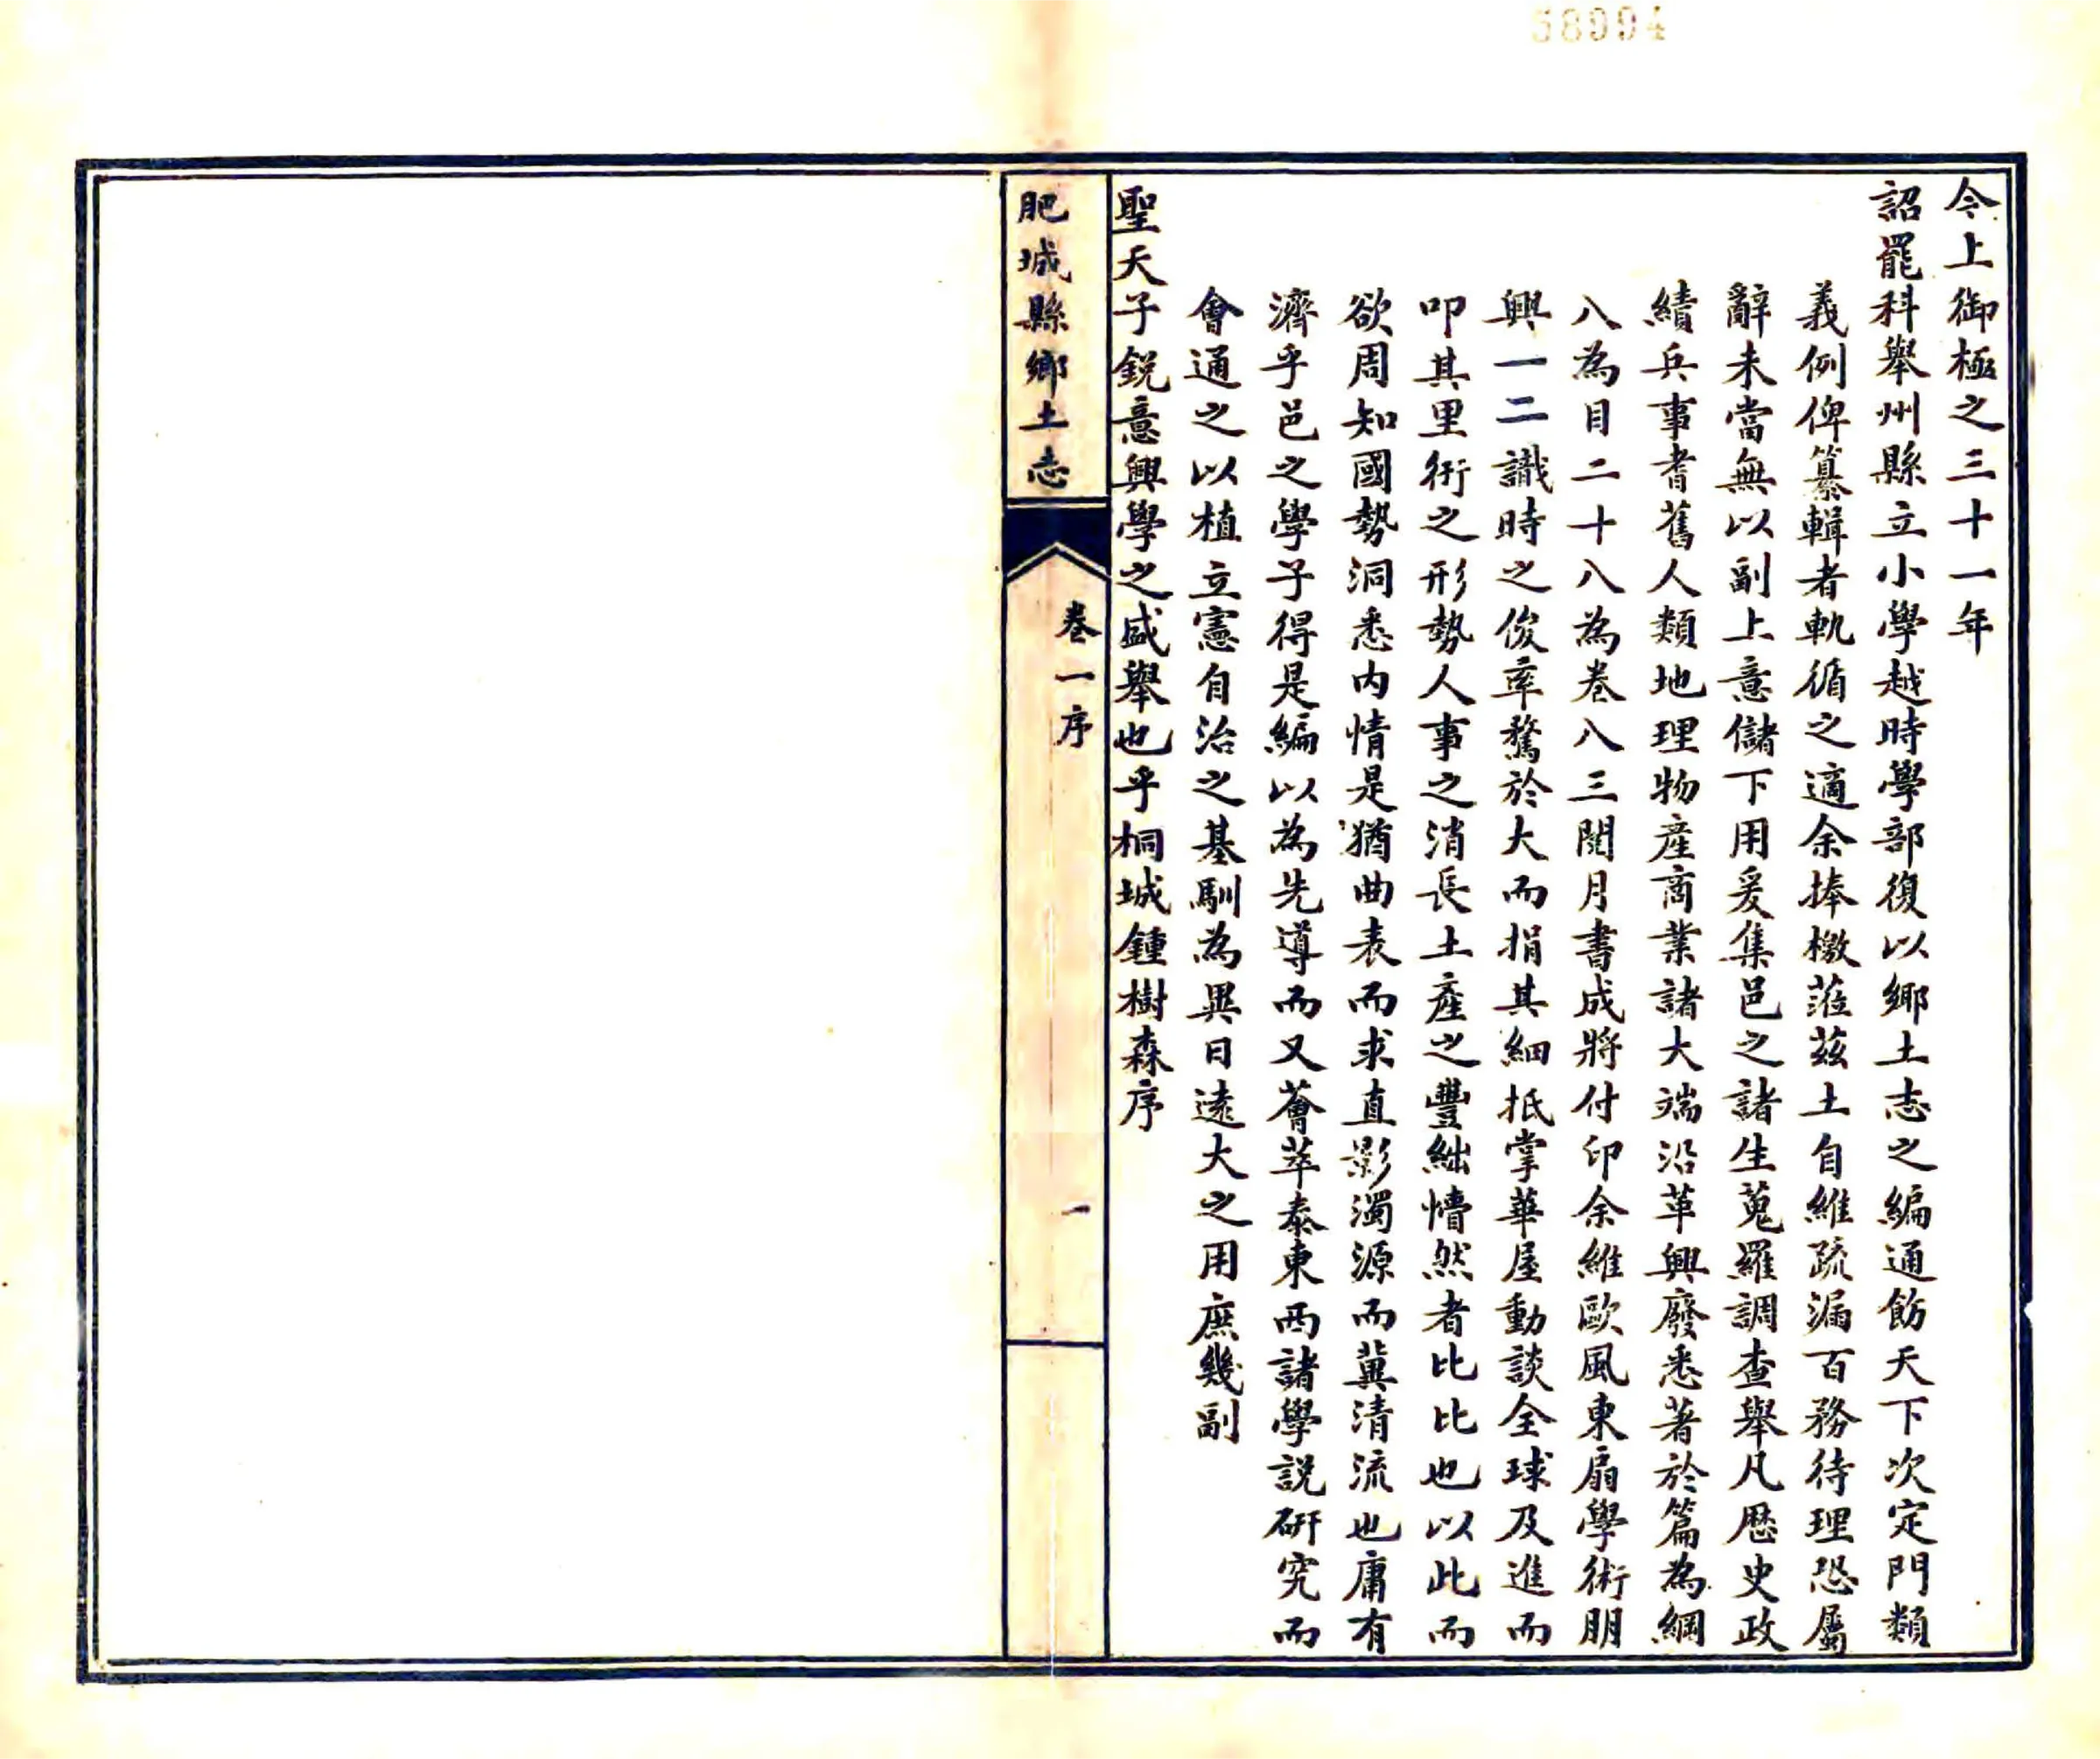 58994
今上御極之三十一年
詔罷科舉州縣立小學越時學部復以鄉土志之編通飭天下次定門類
義例俾纂輯者軌循之適余捧檄蒞茲土自維疏漏百務待理恐屬
辭未當無以副上意儲下用爰集邑之諸生蒐羅調查舉凡歷史政
績兵事耆舊人類地理物產商業諸大端沿革興廢悉著於篇為綱
八為目二十八為卷八三閱月書成將付印余維歐風東扇學術朋
興一二識時之俊率騖於大而捐其細抵掌華屋動談全球及進而
叩其里衖之形勢人事之消長土產之豐絀懵然者比比也以此而
欲周知國勢洞悉內情是猶曲表而求直影濁源而冀清流也庸有
濟乎邑之學子得是編以為先導而又薈萃泰東西諸學說研究而
會通之以植立憲自治之基馴為異日遠大之用庶幾副
聖天子銳意興學之盛舉也乎桐城鍾樹森序
肥城縣鄉土志
卷一序
一